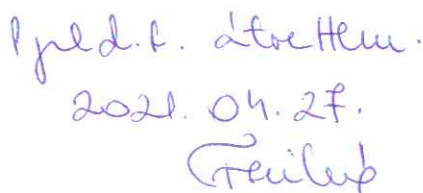 1 pld. t. átvettem.
2021. 04. 27.